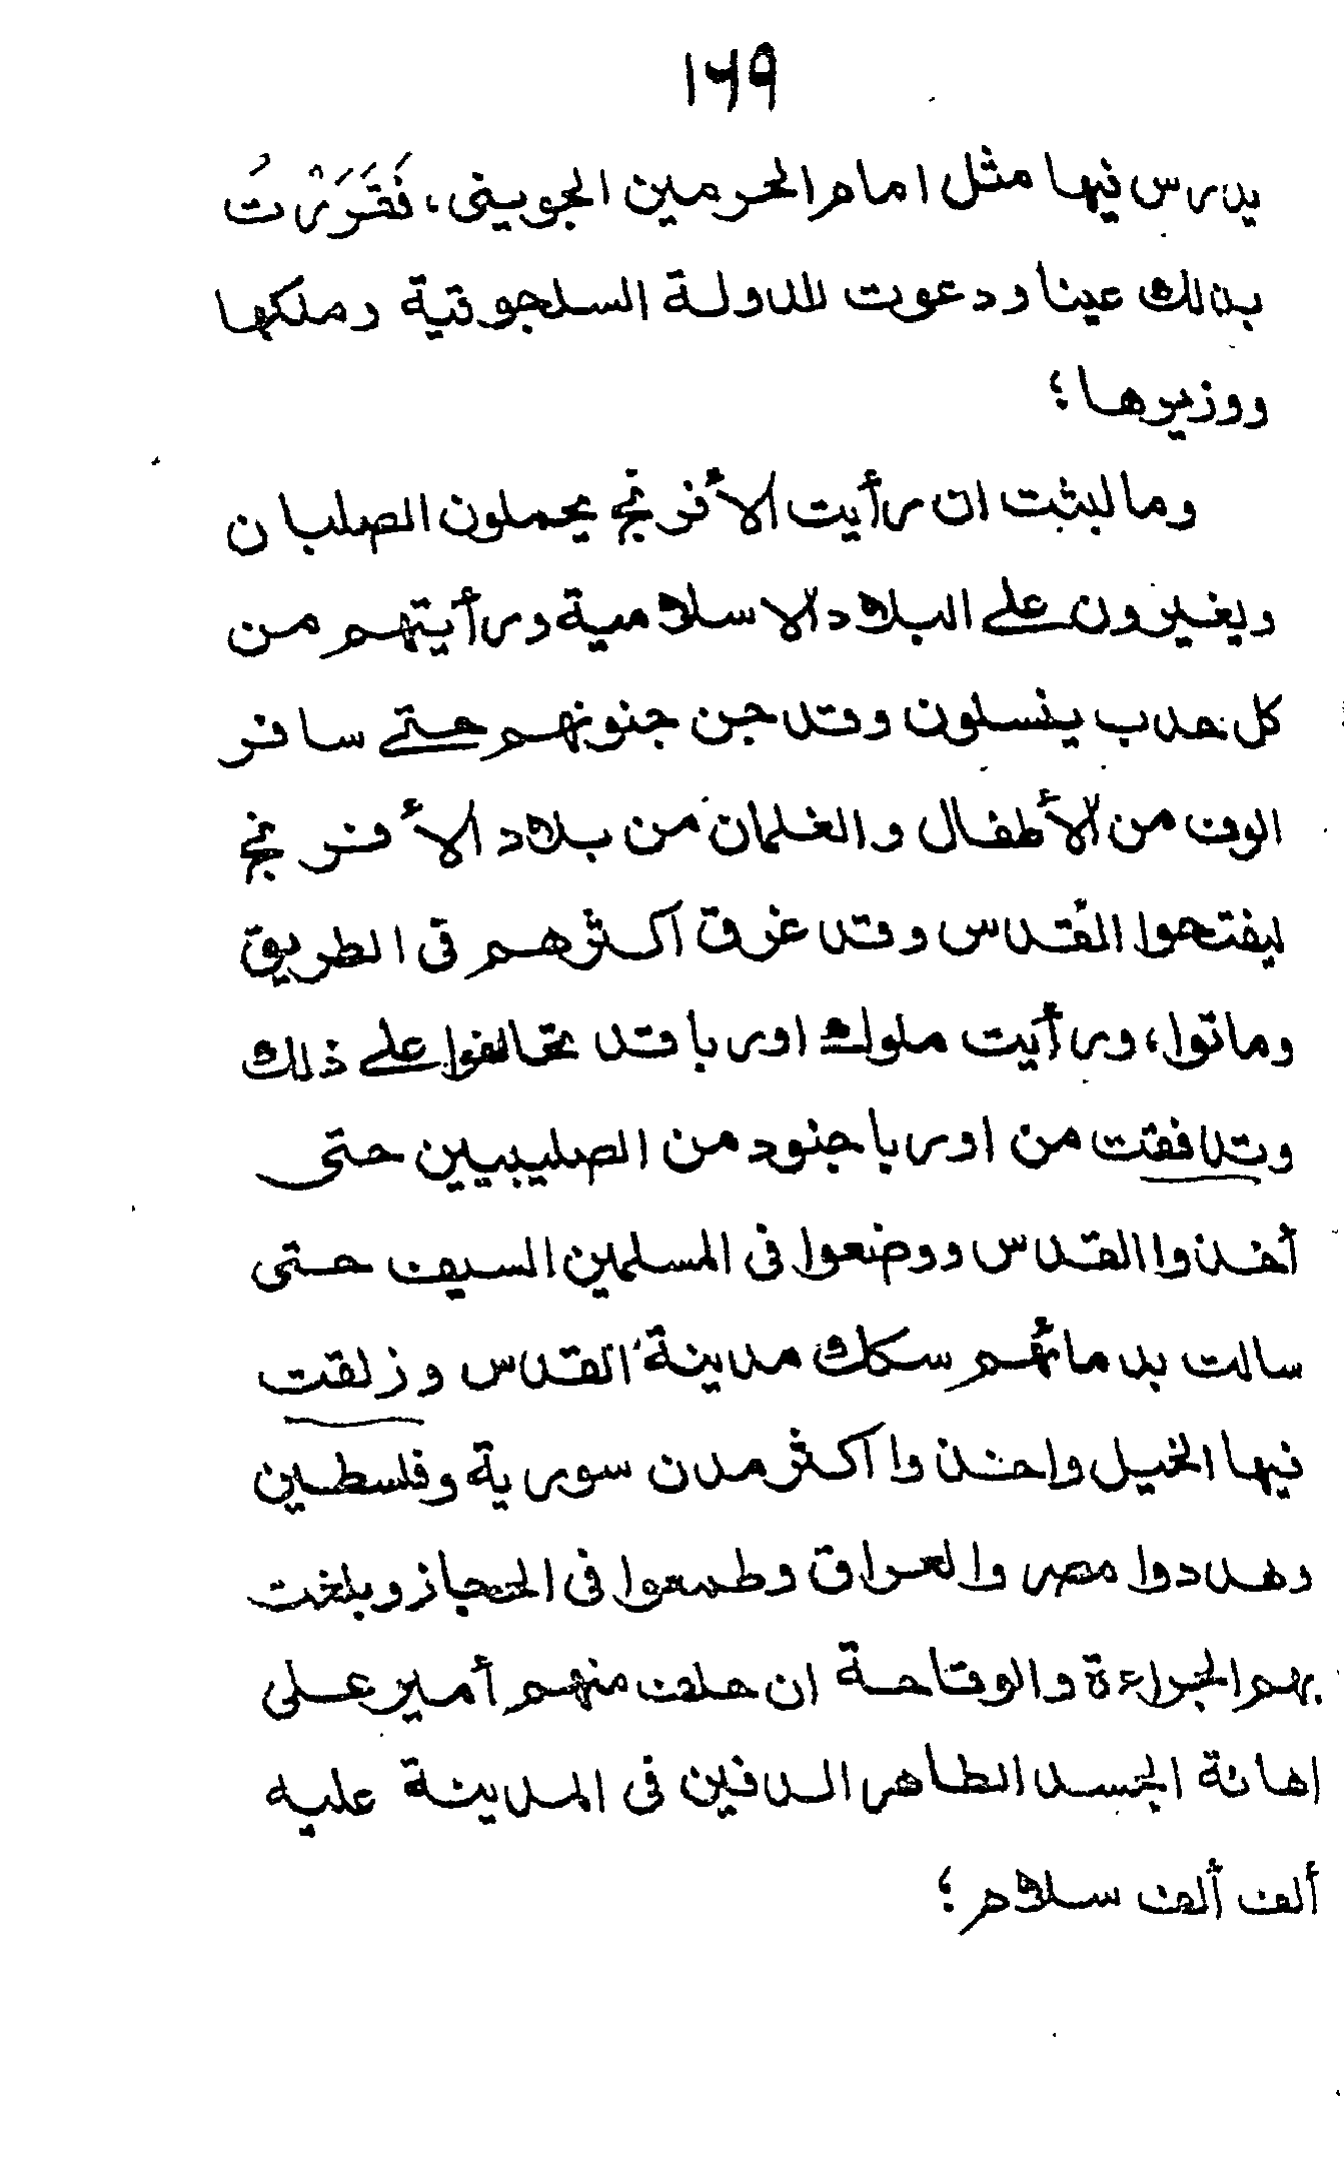 ١٦٩
يدرس فيها مثل امام الحرمين الجويني، فَقَرَرْتُ
بذلك عينا ودعوت للدولة السلجوقية وملكها
ووزيرها؛
وما لبثت ان رأيت الأفرنج يحملون الصلبان
ويغيرون على البلاد الاسلامية ورأيتهم من
كل حدب ينسلون وقد جن جنونهم حتى سافر
الوف من الأطفال والغلمان من بلاد الأفرنج
ليفتحوا القدس وقد غرق اكثرهم في الطريق
وماتوا، ورأيت ملوك اوربا قد تحالفوا على ذلك
وتدافقت من اوربا جنود من الصليبيين حتى
أخذوا القدس ووضعوا في المسلمين السيف حتى
سالت بدمائهم سكك مدينة القدس وزلقت
فيها الخيل واخذوا اكثر مدن سورية وفلسطين
وهددوا مصر والعراق وطمعوا في الحجاز وبلغت
بهم الجراءة والوقاحة ان حلف منهم أمير على
اهانة الجسد الطاهر الدفين في المدينة عليه
ألف ألف سلام؛